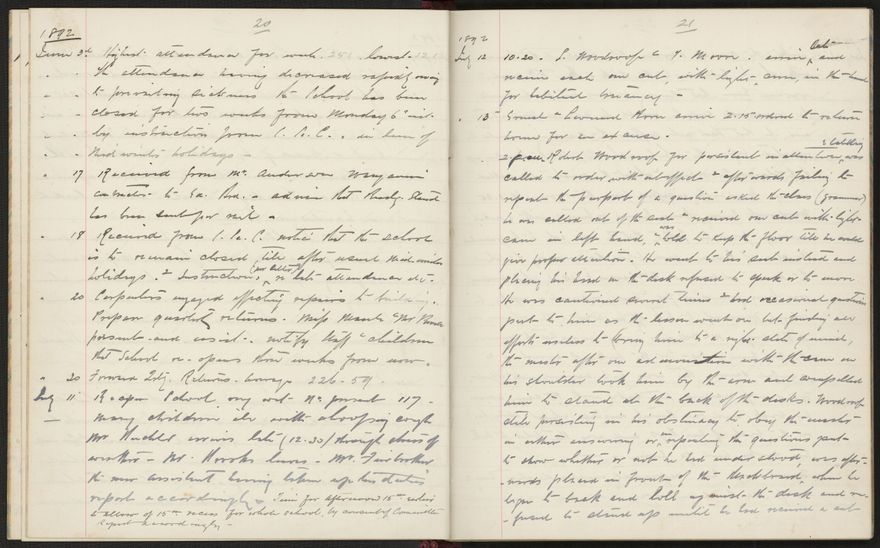 20
1892
June 3rd Highest attendance for week 251 lowest 121
The attendance having decreased rapidly owing
to prevailing sickness the School has been
closed for two weeks from Monday 6th inst.
by instruction from in lieu of
Mid winter holidays -
17 Received from Mr. Anderson
contractor to Ed. advice that Study Stand
has been sent per rail
18 Received from notice that the school
is to remain closed till after usual Mid-winter
holidays. & Instructions late attendance etc.
20 Carpenters engaged effecting repairs to building.
Prepare quarterly returns. Miss
present and assist. notify Staff & children
that School re-opens three weeks from now.
30 Forward Qtly. Returns. average 226.59.
July 11 Re-open School very wet. No. present 117 -
Many children ill with whooping cough
Mr arrives late (12.30) through stress of
weather - Mr. leaves - Mr. Fairbrother
the new assistant having taken up his duties
report accordingly. Time for afternoon
to allow of 15m recess for whole school, by consent of Committee
Report accordingly -
21
1892
July 12 10.20. S. Woodroof & T. Moore. arrive late and
receive each one cut, with light cane, in the hand
for habitual truancy -
13 Ernest & Leonard Moore arrive 2.15. ordered to return
home for an excuse.
2 p.m. Robert Woodroof for persistent inattention, was
called to order with a & afterwards failing to
repeat the purport of a question asked the class (grammar)
he was called out of the seat & received one cut with light
cane in left hand, & was told to keep the floor till he would
give proper attention. He went to his seat instead and
placing his head on the desk refused to speak or to move
He was cautioned several times & had occasional questions
put to him as the lesson went on but finding all
efforts useless to bring him to a right state of mind,
the master after one with the cane on
his shoulder took him by the arm and compelled
him to stand at the back of the desks. Woodroof
still persisting in his obstinacy to obey the master
in either answering or, repeating the questions put
to show whether or not he had understood, was after-
-wards placed in front of the blackboard, when he
began to back and loll against the desk and re-
-fused to stand up until he had received a cut